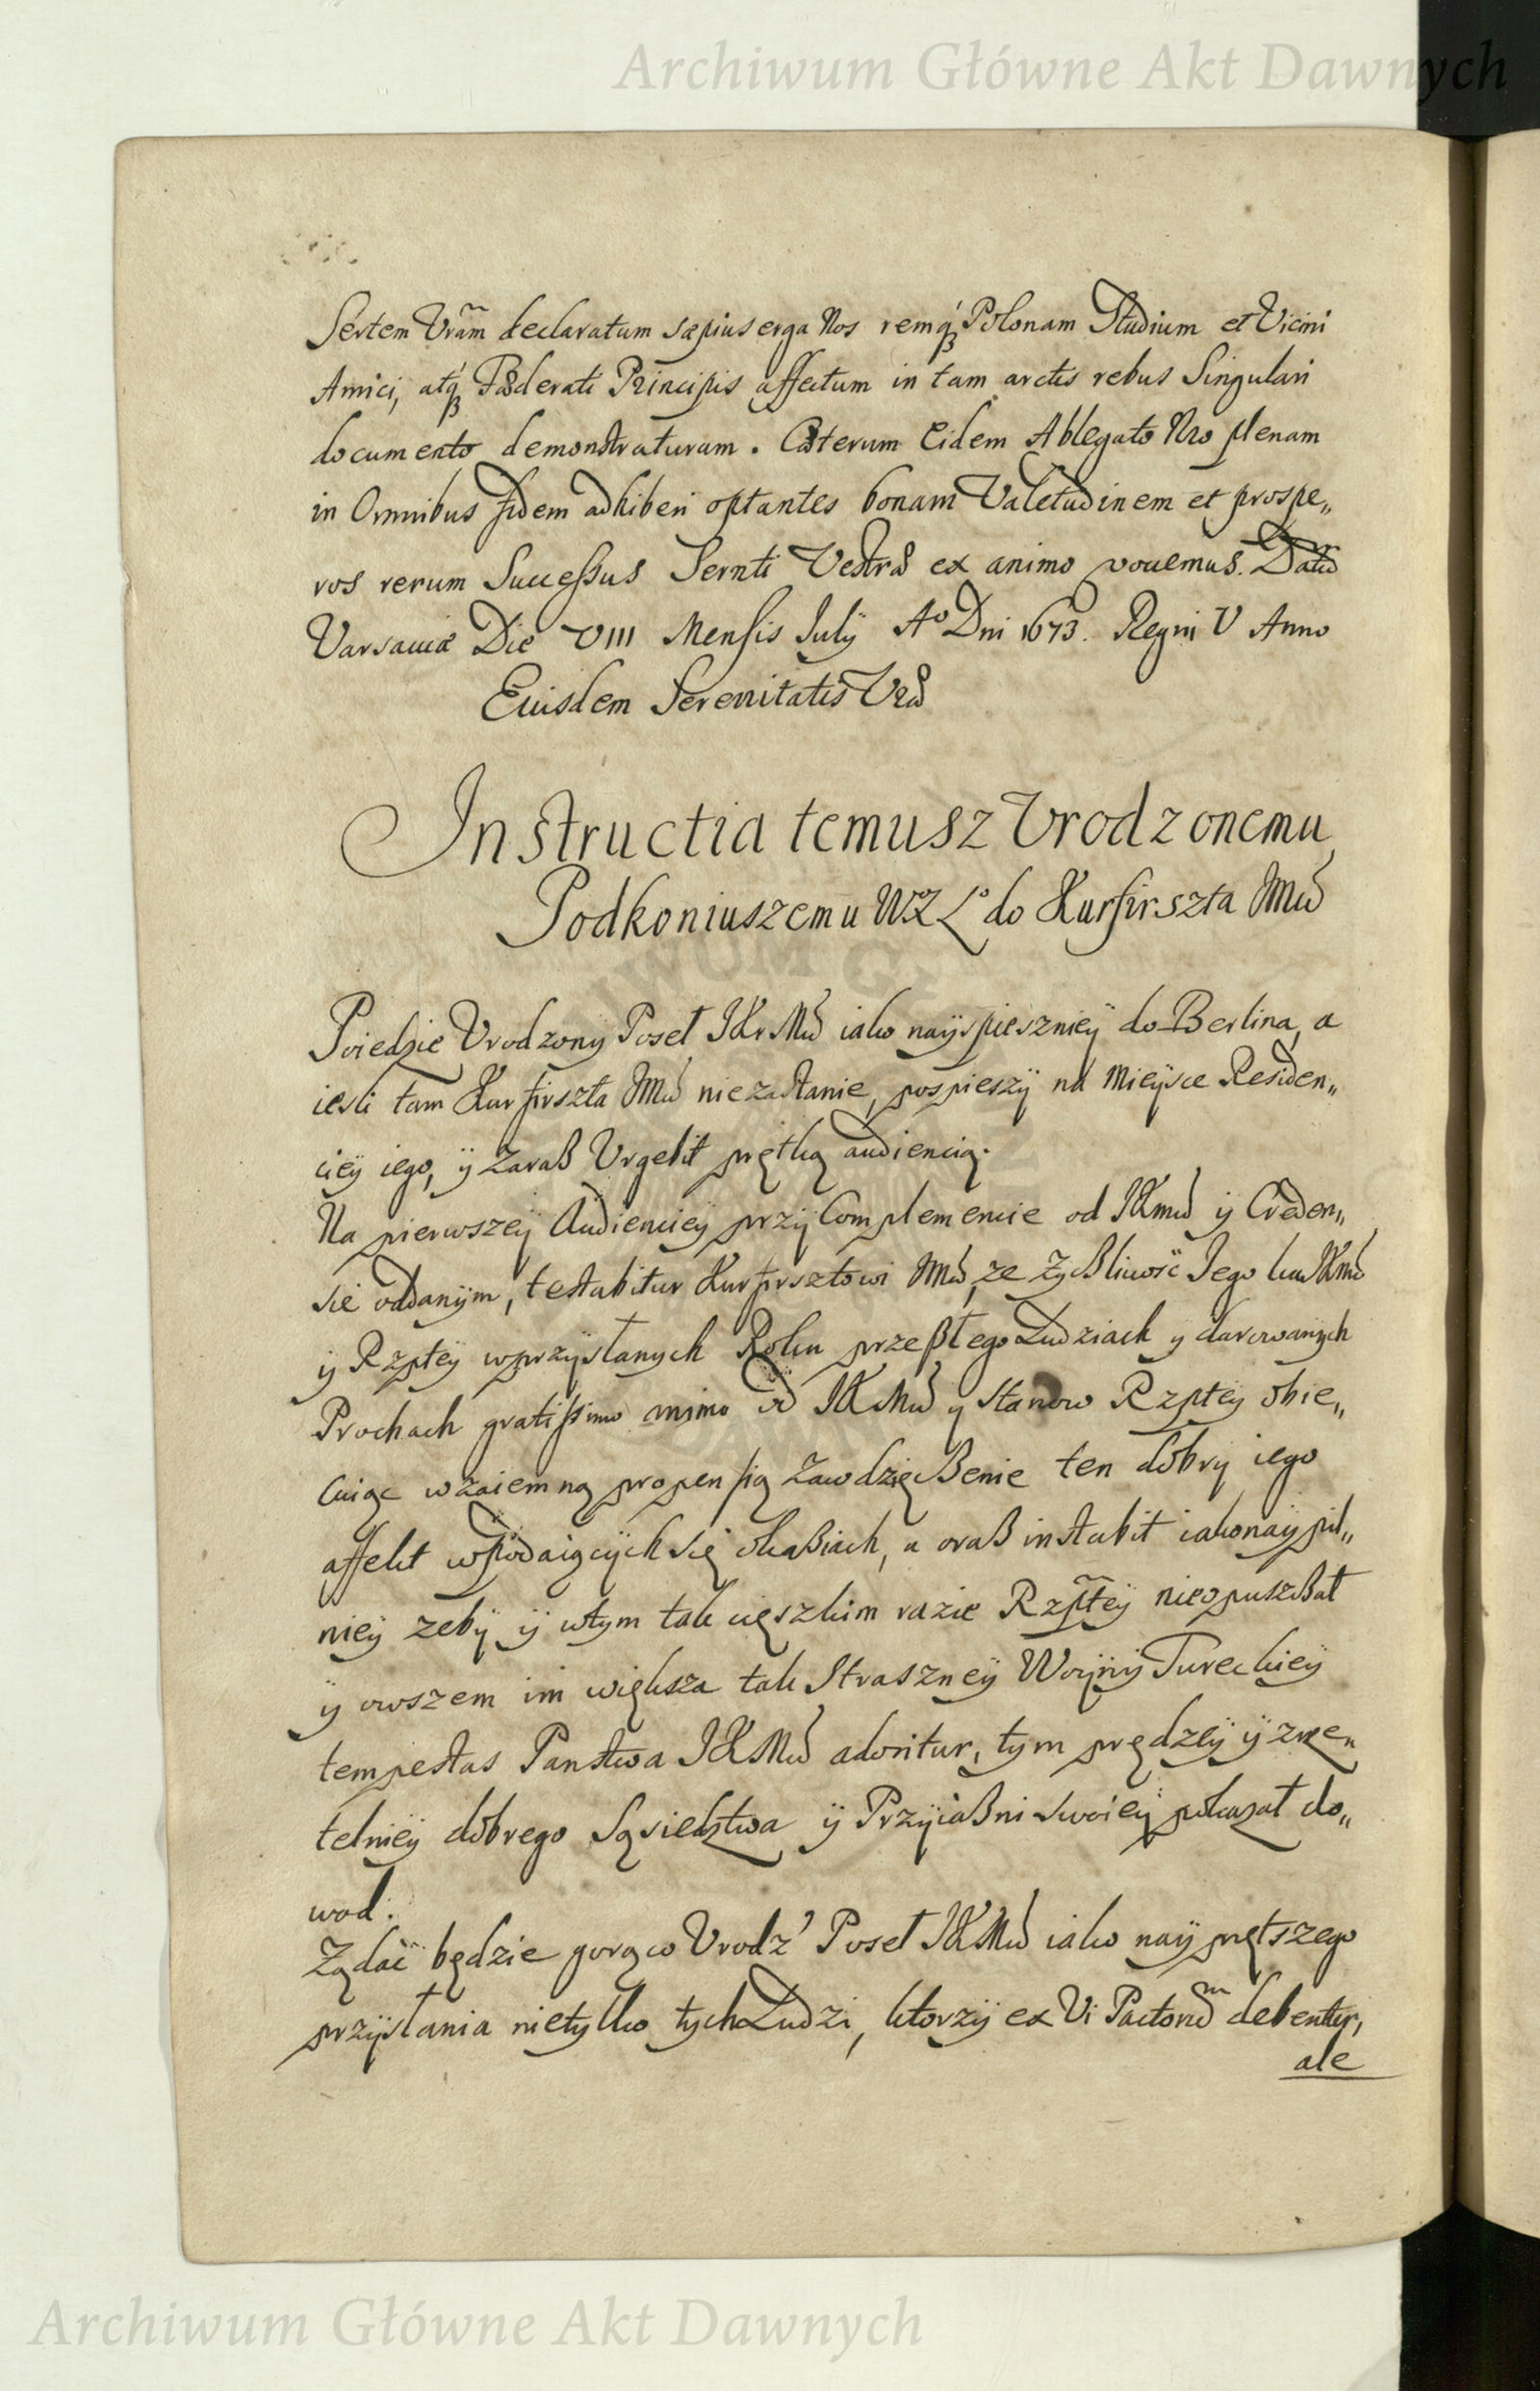 Archiwum Główne Akt Dawnych
Sertem Vrãm declaratum sæpius erga Nos remq́ Polonam Studium et Vicini
Amici, atq́ Fæderati Principis affectum in tam arctis rebus Singulari
documento demonstraturam. Cæterum Eidem Ablegato Nro plenam
in Omnibus fidem adhiberi optantes bonam Valetudinem et prospe„
ros rerum Successus Sernti Vestræ ex animo vouemus. Datũ
Varsauiæ Die VIII Mensis Julÿ Aº Dni 1673. Regni V Anno
Eiusdem Serenitatis Vræ
Instructia temusz Vrodzonemu
Podkoniuszemu WXLº do Kurfirszta JMći
Poiedzie Vrodzony Poseł JKrMći iako naÿspiesznieÿ do Berlina, a
iesli tam Kurfirszta JMći niezastanie, pospieszÿ na mieÿsce Residen„
cieÿ iego, ÿ Zaraß Vrgebit prętką audiencią.
Na pierwszeÿ Audiencieÿ przÿ Complemencie od JKmći ÿ Creden„
sie oddanÿm, testabitur Kurfirsztowi JMći, ze Zÿcßliwość Jego ku JKmći
ÿ Rzpteÿ wprzÿsłanych Roku przeßłego Ludziach y darowanych
Prochach gratissimo animo od JKMći y Stanow Rzpteÿ obie„
cuiąc wzaiemną propensią Zawdzięcßenie ten dobry iego
affekt wpodaiącÿch się okaßiach, a oraß instabit iakonaÿpil„
nieÿ zebÿ ÿ wtym tak cięszkim razie Rzpłteÿ nieopuszcßał
ÿ owszem im większa tak Straszneÿ Woÿnÿ Tureckieÿ
tempestas Panstwa JKMći adoritur, tym prędzeÿ ÿ rze„
telnieÿ dobrego Sąsiedztwa ÿ Przÿiaßni swoieÿ pokazał do„
wod.
Ządać będzie gorąco Vrodz' Poseł JKMći iako naÿprętszego
przÿsłania nietylko tych Ludzi, ktorzÿ ex Vi Pactorũ debentur,
ale
Archiwum Główne Akt Dawnych